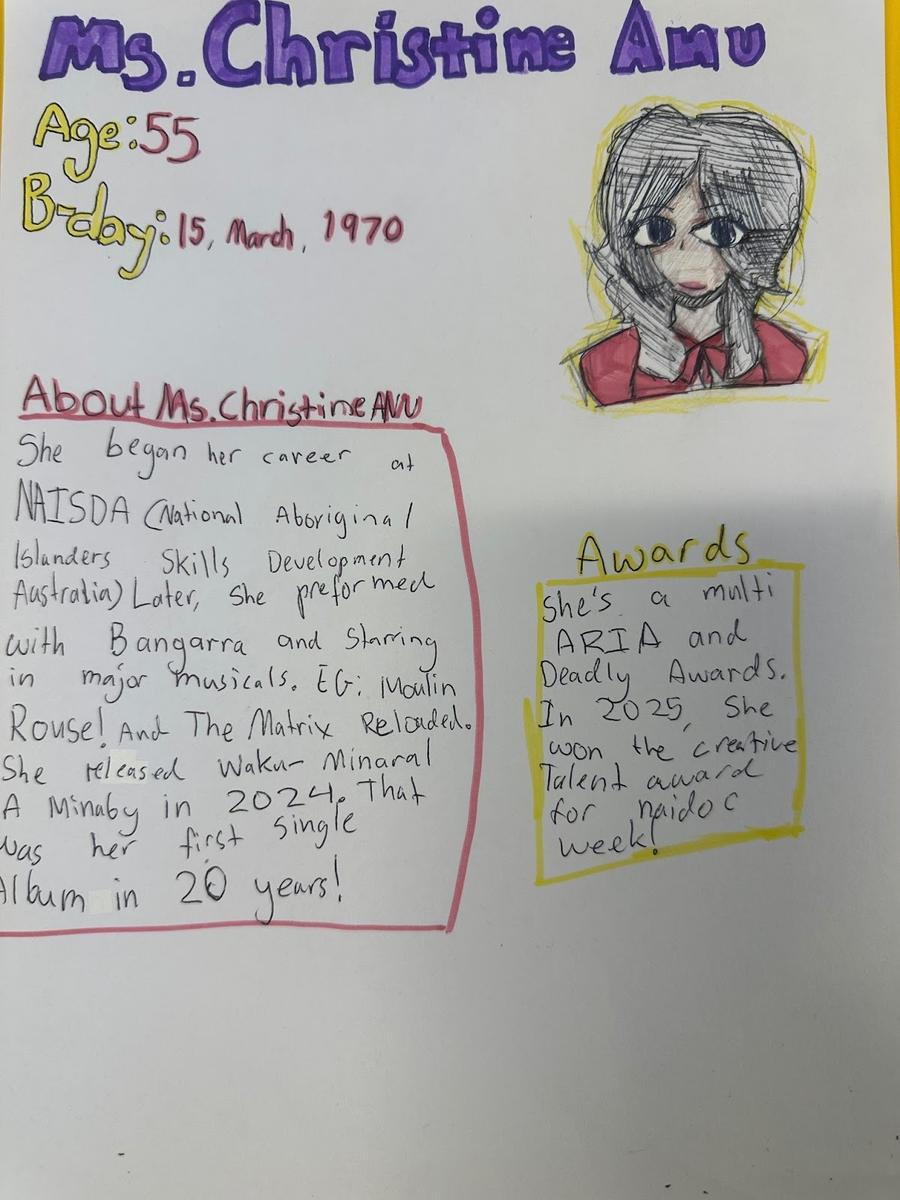 Ms. Christine Anu
Age: 55
B-day: 15, March, 1970
About Ms. Christine ANU
She began her career at
NAISDA (National Aboriginal
Islanders Skills Development
Australia) Later, She preformed
with Bangarra and Starring
in major musicals. EG: Moulin
Rouse! And The Matrix Reloaded.
She released Waku- Minaral
A Minaby in 2024. That
was her first single
Album in 20 years!
Awards
She's a multi
ARIA and
Deadly Awards.
In 2025, She
won the creative
Talent award
for naidoc
week!